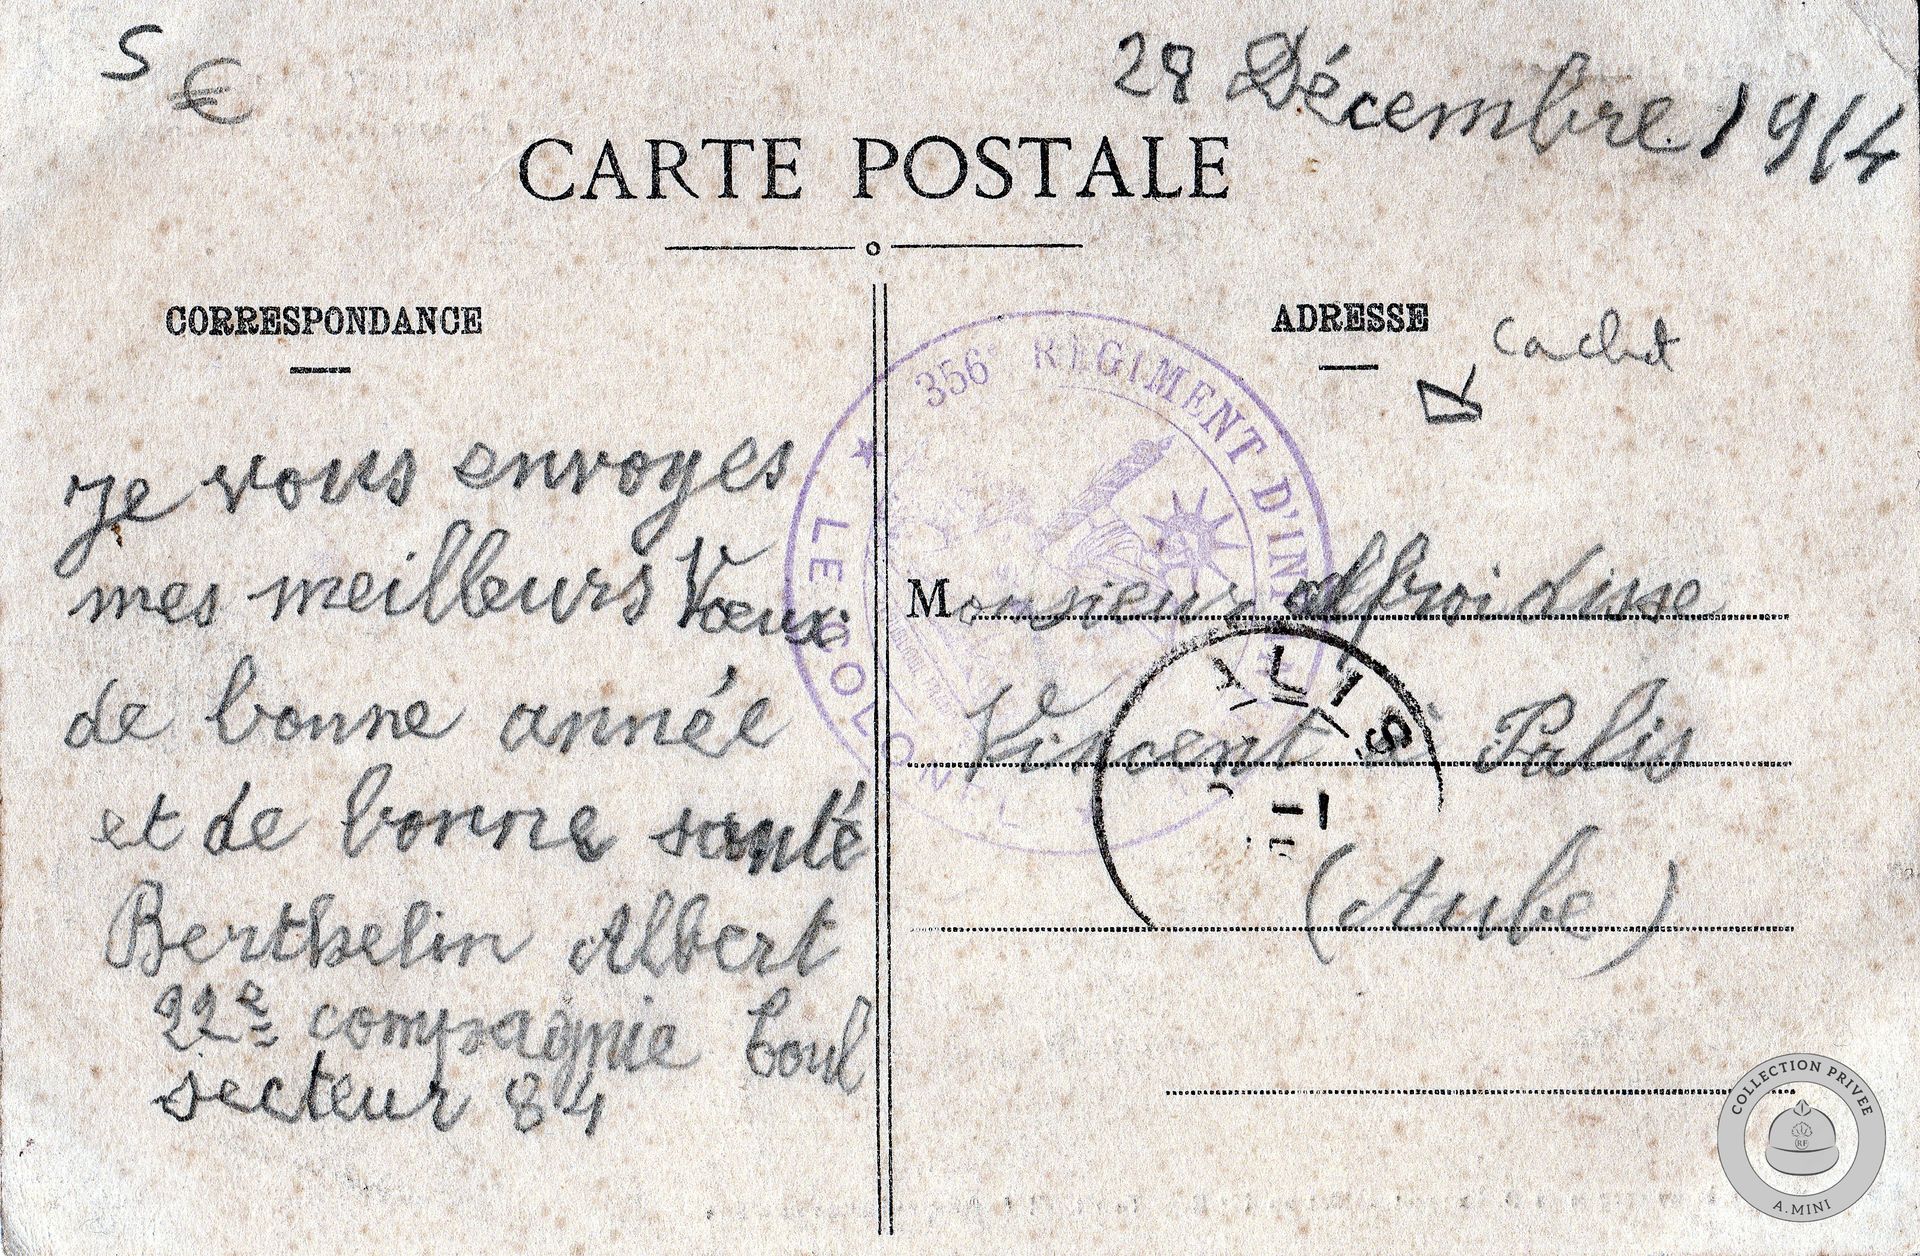 5 €
28 Décembre 1914
CARTE POSTALE
CORRESPONDANCE
ADRESSE
Cachet
356e REGIMENT D'INF
LE COLONEL
Je vous envoyes
mes meilleurs Vœux
de bonne année
et de bonne santé
Berthelin Albert
22e compagnie Toul
secteur 84
Monsieur alfroi disse
Vinscent à Palis
(Aube)
PALIS
COLLECTION PRIVEE
RF
A.MINI